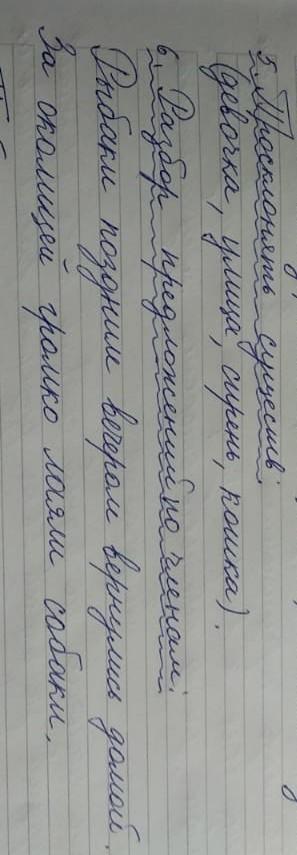 5. Просклонять существ.
(девочка, улица, сирень, кошка).
6. Разбор предложений по членам.
Рыбаки поздним вечером вернулись домой.
За околицей громко лаяли собаки.